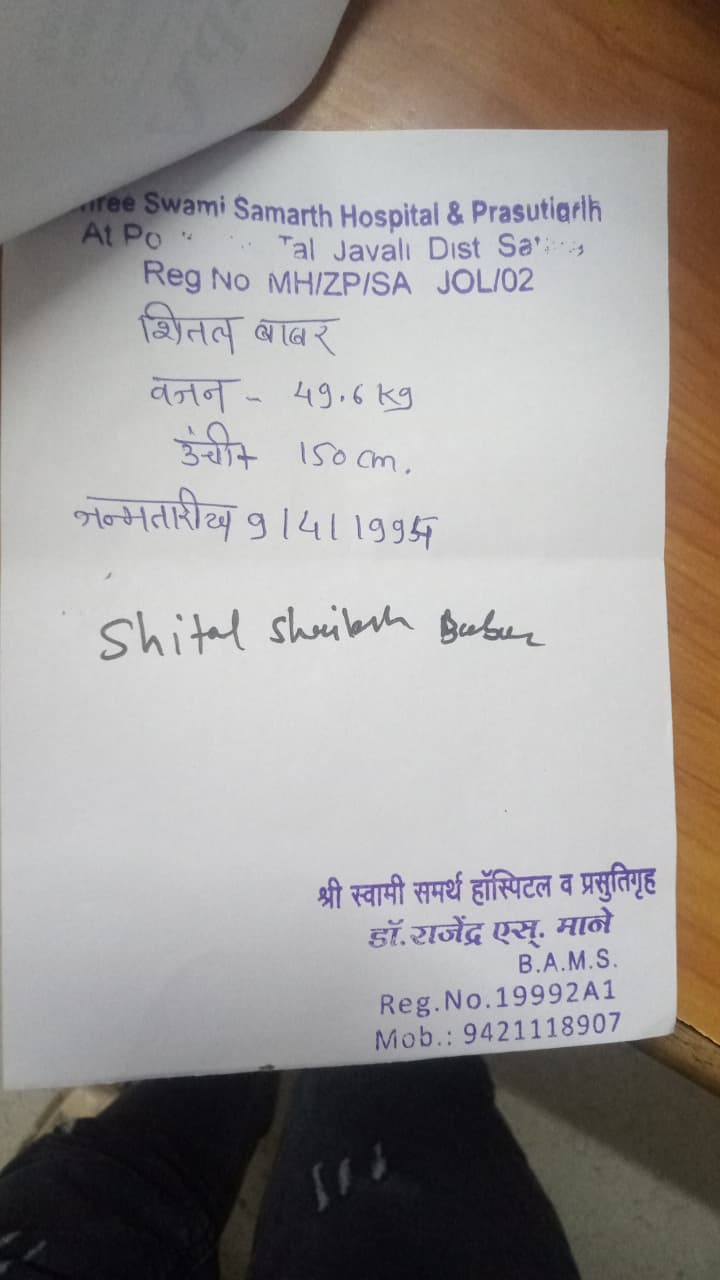 Swami Samarth Hospital & Prasutigrih
At Po Tal Javali Dist
Reg No MH/ZP/SA JOL/02
शितल बाबर
वजन - 49.6 kg
उंची 150 cm.
जन्मतारीख 9/4/1995
Shital Shailesh Babar
श्री स्वामी समर्थ हॉस्पिटल व प्रसुतिगृह
डॉ.राजेंद्र एस्. माने
B.A.M.S.
Reg.No.19992A1
Mob.: 9421118907